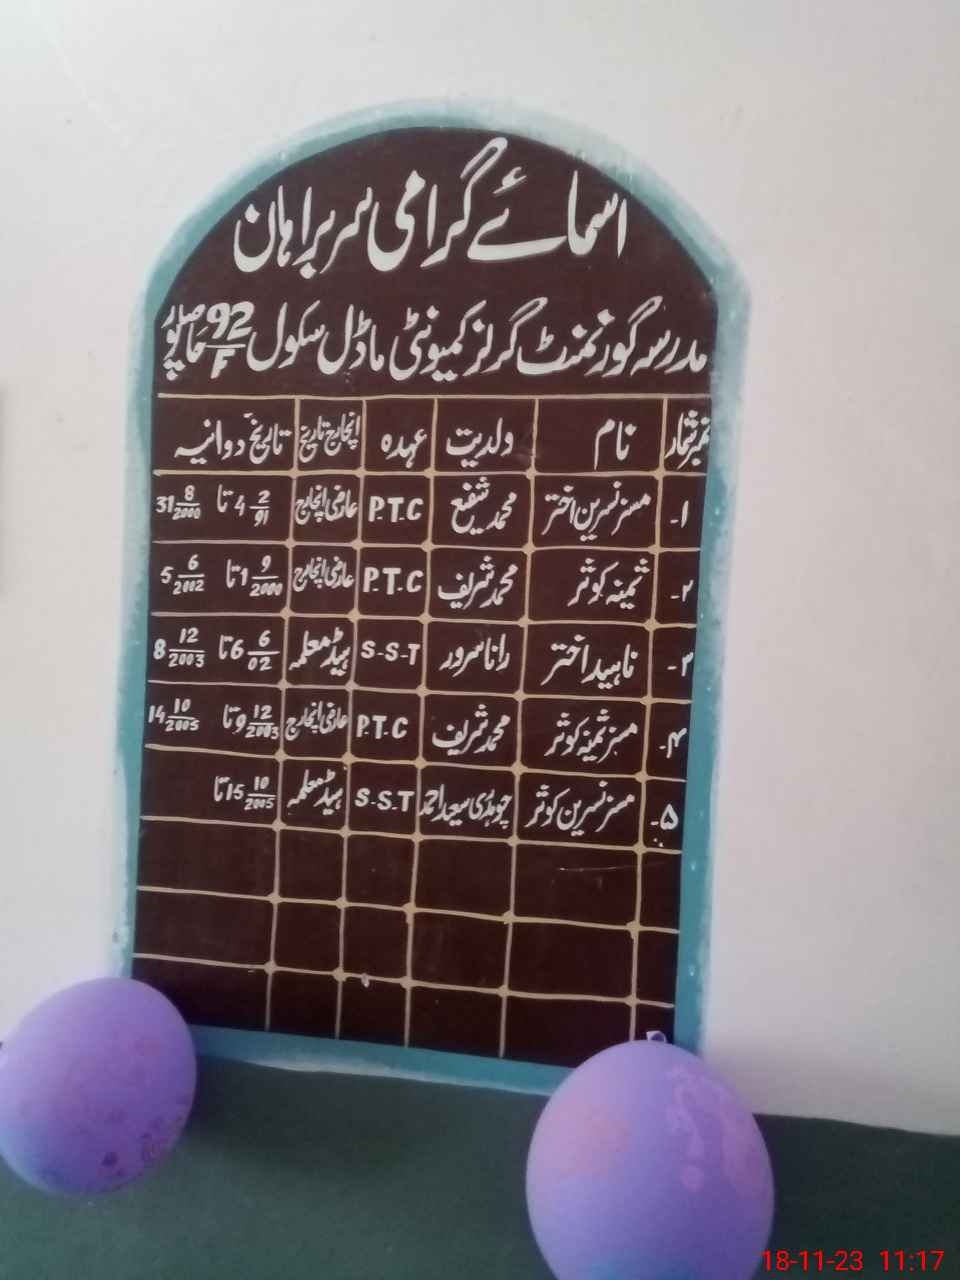 اسمائے گرامی سربراہان
مدرسہ گورنمنٹ گرلز کمیونٹی ماڈل سکول 92/F حاصلپور
نمبر شمار نام ولدیت عہدہ انچارج تاریخ تاریخ دوانیہ
۱- مسز نسرین اختر محمد شفیع P.T.C عارضی انچارج 4 2/91 تا 31 8/2000
۲- ثمینہ کوثر محمد شریف P.T.C عارضی انچارج 1 9/2000 تا 5 6/2002
۳- ناہید اختر رانا سرور S-S-T ہیڈ معلمہ 6 6/02 تا 8 12/2003
۴- مسز ثمینہ کوثر محمد شریف P.T.C عارضی انچارج 9 12/2003 تا 14 10/2005
۵- مسز نسرین کوثر چوہدری سعید احمد S-S-T ہیڈ معلمہ 15 10/2005 تا
18-11-23 11:17